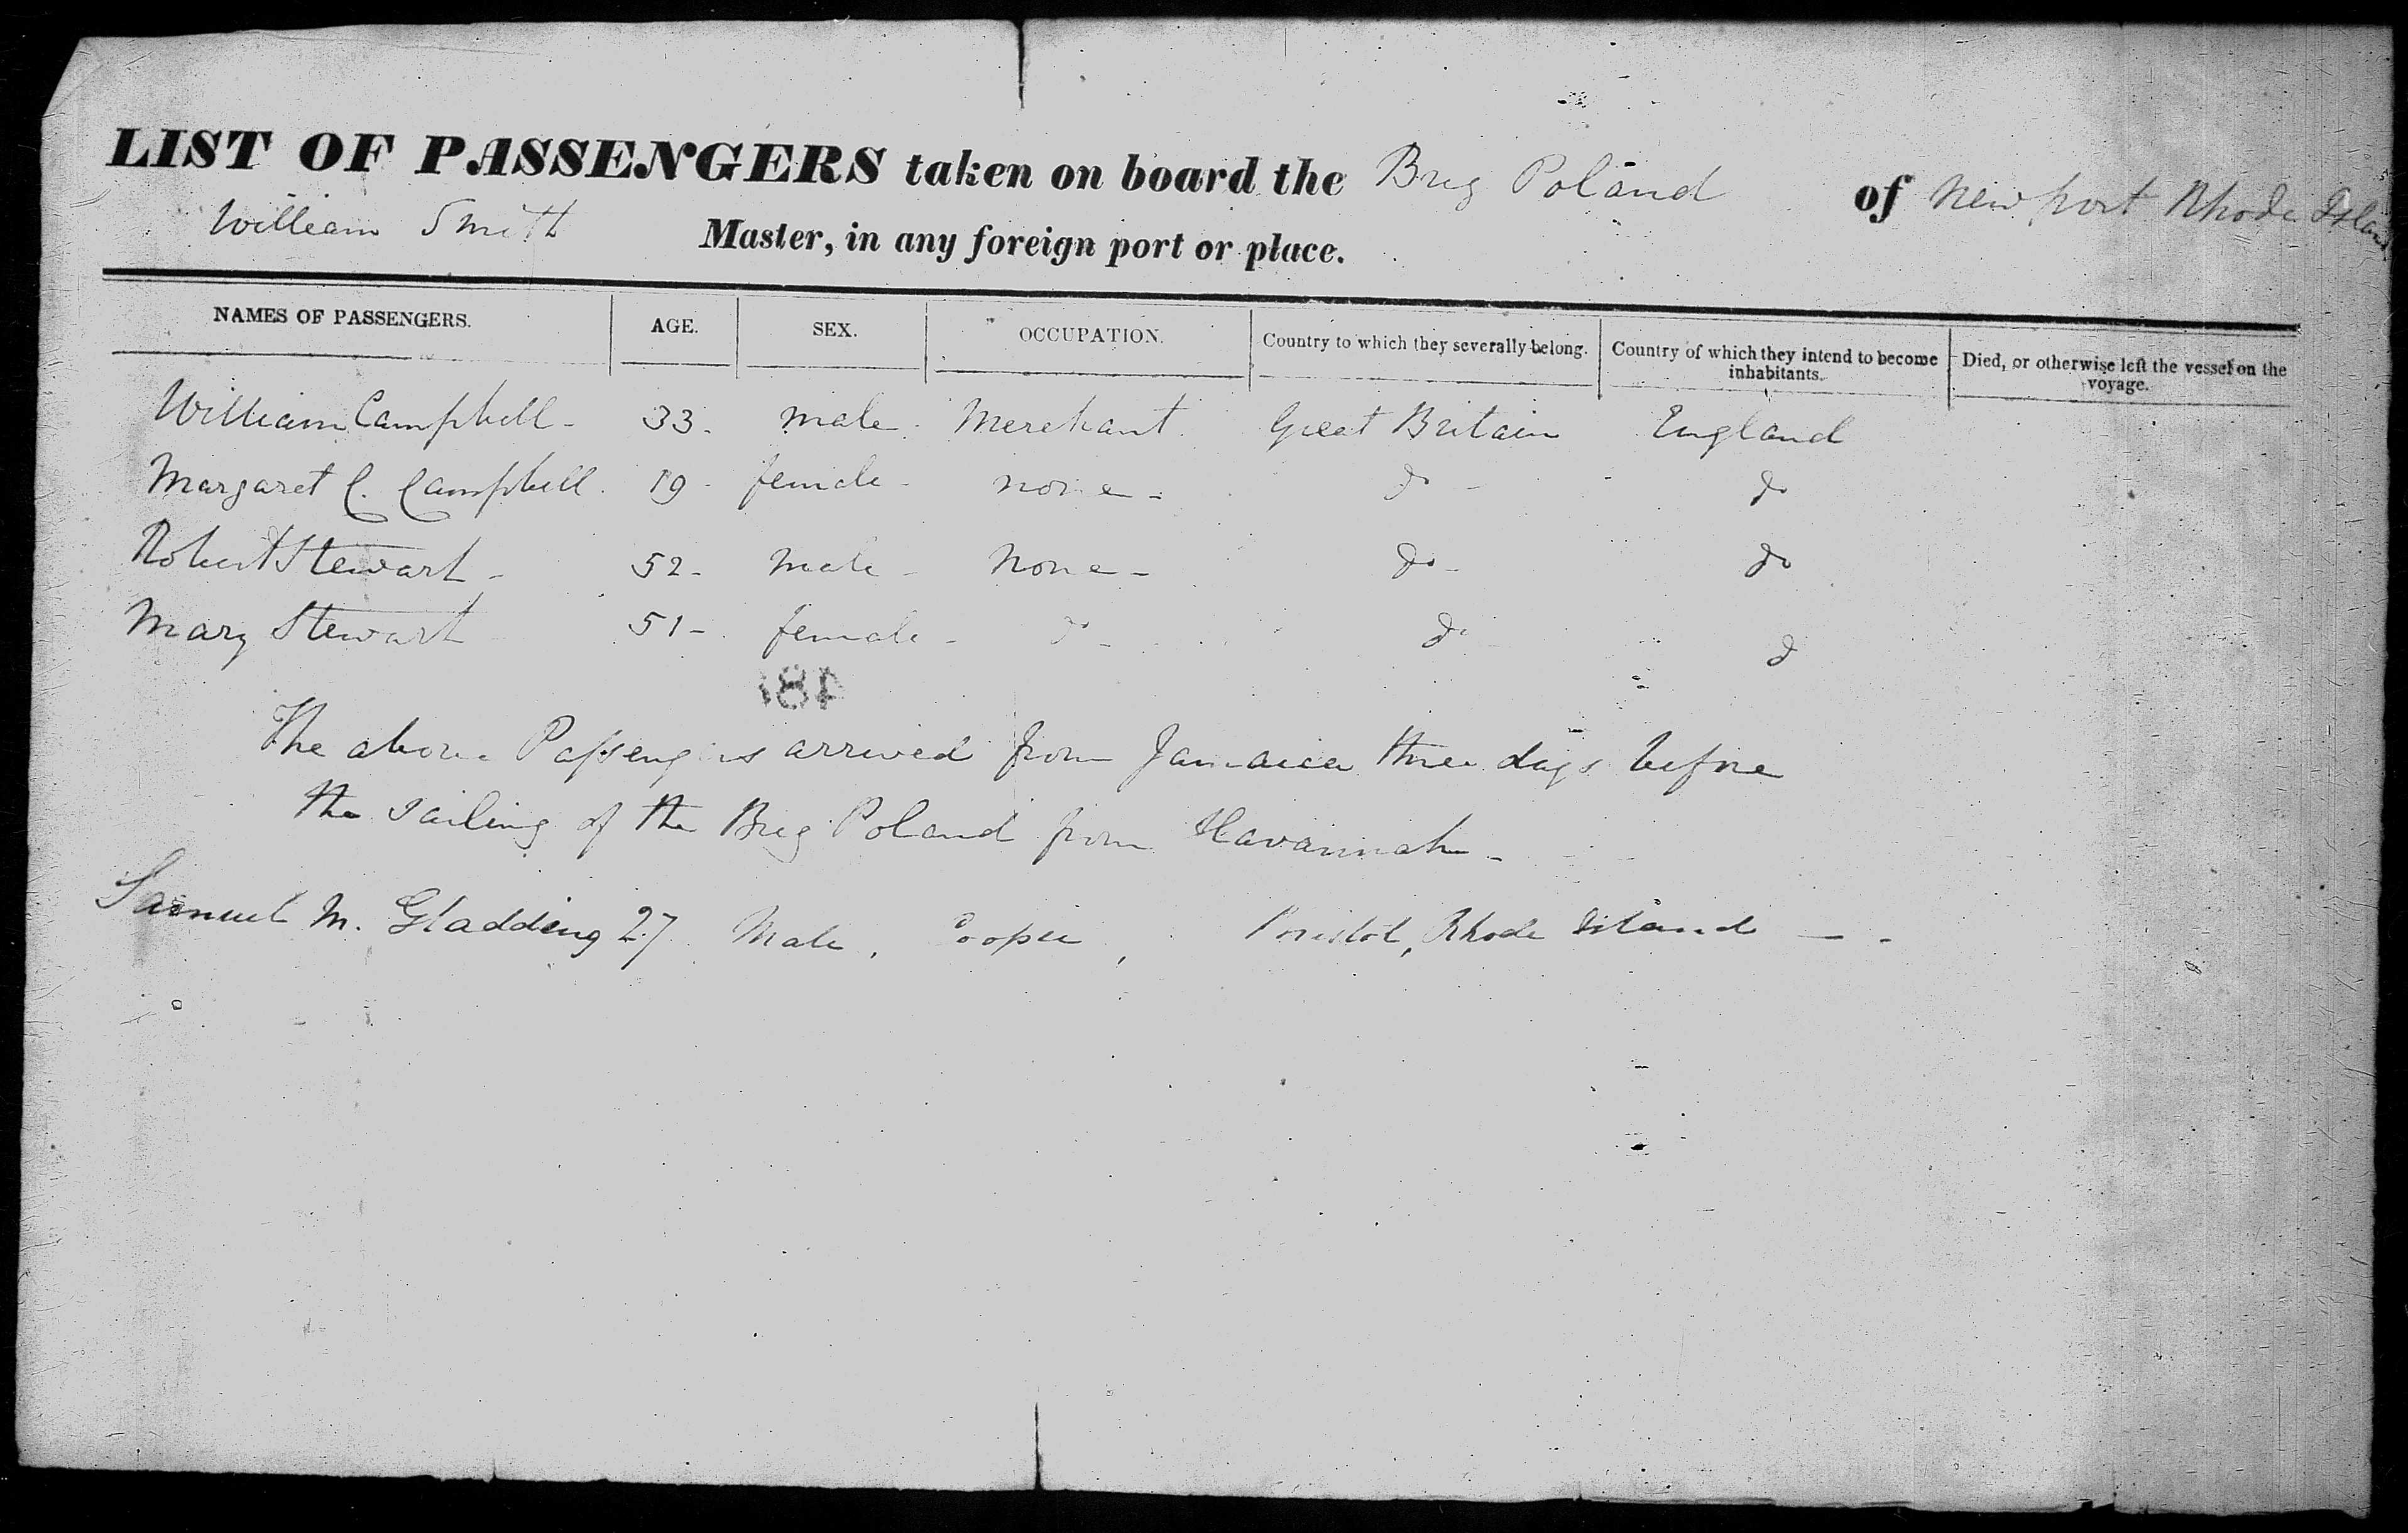 LIST OF PASSENGERS taken on board the Brig Poland of Newport Rhode Island
William Smith Master, in any foreign port or place.
NAMES OF PASSENGERS. AGE. SEX. OCCUPATION. Country to which they severally belong. Country of which they intend to become inhabitants. Died, or otherwise left the vessel on the voyage.
William Campbell - 33 - male - Merchant Great Britain England
Margaret C. Campbell 19 - female - none - do - do
Robert Stewart - 52 - male - none - do - do
Mary Stewart 51 - female - do - do do
The above Passengers arrived from Jamaica three days before
the sailing of the Brig Poland from Havannah -
Samuel M. Gladding 27 Male, Cooper, Bristol, Rhode Island - -